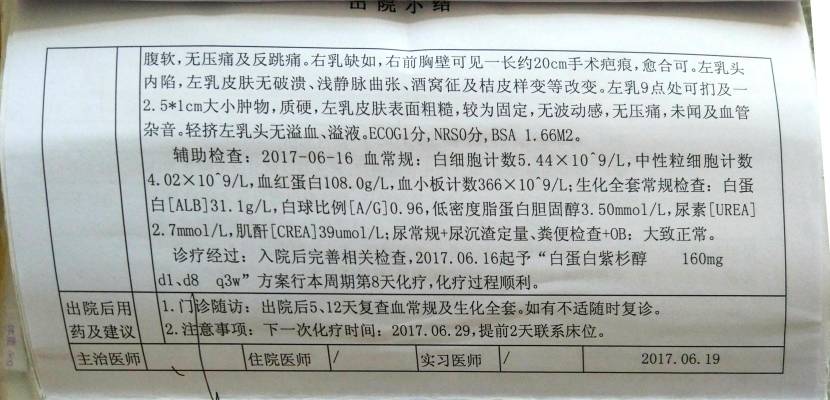 出院小结
腹软,无压痛及反跳痛。右乳缺如,右前胸壁可见一长约20cm手术疤痕,愈合可。左乳头
内陷,左乳皮肤无破溃、浅静脉曲张、酒窝征及桔皮样变等改变。左乳9点处可扪及一
2.5*1cm大小肿物,质硬,左乳皮肤表面粗糙,较为固定,无波动感,无压痛,未闻及血管
杂音。轻挤左乳头无溢血、溢液。ECOG1分,NRS0分,BSA 1.66M2。
辅助检查：2017-06-16 血常规：白细胞计数5.44×10^9/L,中性粒细胞计数
4.02×10^9/L,血红蛋白108.0g/L,血小板计数366×10^9/L;生化全套常规检查：白蛋
白[ALB]31.1g/L,白球比例[A/G]0.96,低密度脂蛋白胆固醇3.50mmol/L,尿素[UREA]
2.7mmol/L,肌酐[CREA]39umol/L;尿常规+尿沉渣定量、粪便检查+OB：大致正常。
诊疗经过：入院后完善相关检查,2017.06.16起予“白蛋白紫杉醇 160mg
d1、d8 q3w”方案行本周期第8天化疗,化疗过程顺利。
出院后用药及建议
1.门诊随访：出院后5、12天复查血常规及生化全套。如有不适随时复诊。
2.注意事项：下一次化疗时间：2017.06.29,提前2天联系床位。
主治医师 住院医师 / 实习医师 / 2017.06.19